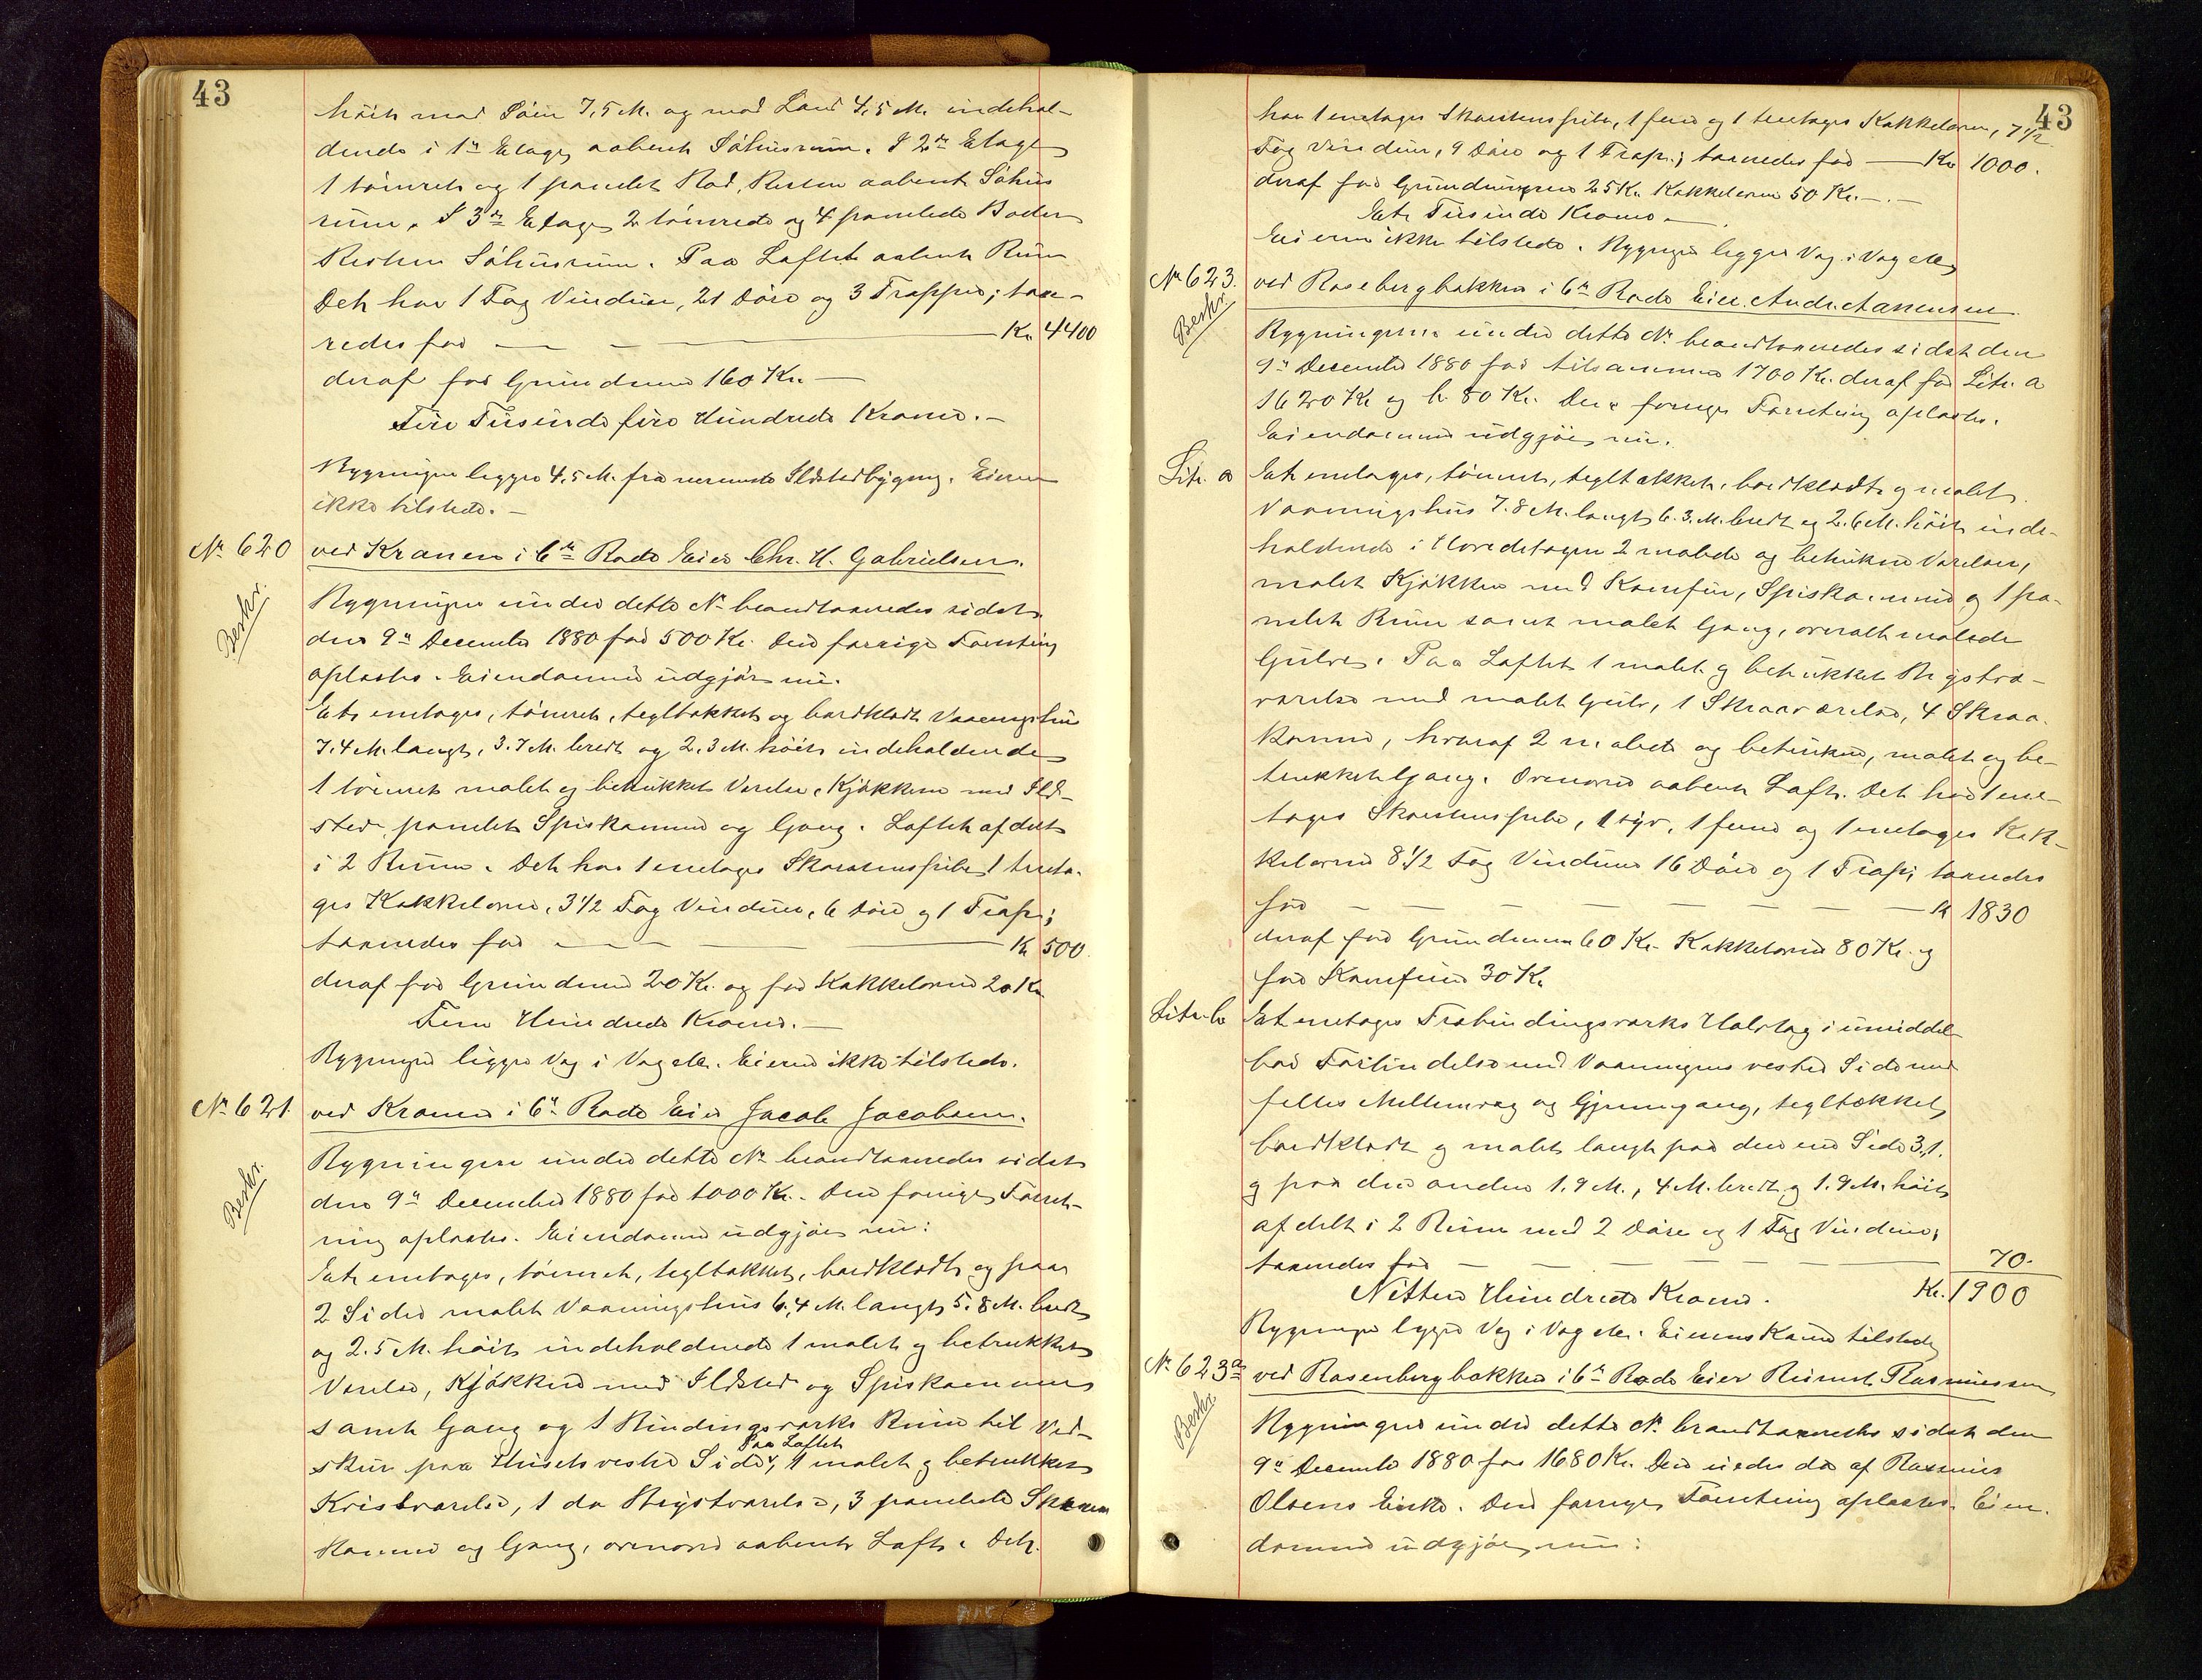 43
høit mod Søen 7,5 M. og mod Land 4,5 M. indehol-
dende i 1ste Etage aabent Søhusrum. I 2den Etage
1 tømret og 1 panelet Bod, Resten aabent Søhus
rum. I 3die Etage 2 tømrede og 4 panelede Boder
Resten Søhusrum. Paa Loftet aabent Rum
Det har 1 Fag Vinduer, 21 Døre og 3 Trapper; taxe-
redes for — — — Kr 4400
deraf for Grundmur 160 Kr. —
Fire Tusinde fire Hundrede Kroner. —
Bygningen ligger 4,5 M. fra nærmeste Ildstedbygning. Eieren
ikke tilstede. —
No 620 ved Kranen i 6te Rode Eier Chr. H. Gabrielsen.
Beskr.
Bygningen under dette No brandtaxeredes sidst
den 9de December 1880 for 500 Kr. Den forrige Forretning
oplæstes. Eiendommen udgjør nu.
Et enetages, tømret, tegltækket og bordklædt Vaaningshus
7.4 M. langt, 3.7 M. bredt og 2.3 M. høit indeholdende
1 tømret malet og betrukket Værelse, Kjøkken med Ild-
sted, panelet Spiskammer og Gang. Loftet afdelt
i 2 Rum. Det har 1 enetages Skorstenspibe 1 treeta-
ges Kakkelovn, 3 1/2 Fag Vinduer, 6 Døre og 1 Trap;
taxeredes for — — — Kr 500.
deraf for Grundmur 20 Kr. og for Kakkelovn 20 Kr
Fem Hundrede Kroner. —
Bygningen ligger Væg i Væg etc. Eieren ikke tilstede.
No 621. ved Kranen i 6te Rode Eier Jacob Jacobsen.
Beskr.
Bygningen under dette No brandtaxeredes sidst
den 9de December 1880 for 1000 Kr. Den forrige Forret-
ning oplæstes. Eiendommen udgjør nu:
Et enetages, tømret, tegltækket, bordklædt og paa
2 Sider malet Vaaningshus 6,4 M. langt, 5.8 M. bredt
og 2.5 M. høit indeholdende 1 malet og betrukket
Værelse, Kjøkken med Ildsted og Spiskammer
samt Gang og 1 Bindingsværks Rum til Ved-
Paa Loftet
skur paa Husets vestre Side, 1 malet og betrukket
Kvistværelse, 1 do Bygstværelse, 3 panelede Skraa
Kamre og Gang, ovenover aabent Loft. Det
43
har 1 enetages Skorstenspibe, 1 fem og 1 treetages Kakkelovn, 7 1/2
Fag Vinduer, 9 Døre og 1 Trap; taxeredes for — Kr 1000.
deraf for Grundmuren 25 Kr. Kakkelovne 50 Kr. —
Et Tusinde Kroner. —
Eieren ikke tilstede. Bygningen ligger Væg i Væg etc
No 623. ved Rosebergbakken i 6te Rode Eier Andr. Aanensen.
Beskr.
Bygningerne under dette No brandtaxeredes sidst den
9de December 1880 for tilsammen 1700 Kr. deraf for Litr. a
1620 Kr og b. 80 Kr. Den forrige Forretning oplæstes.
Eiendommen udgjør nu.
Litr. a Et enetages, tømret, tegltækket, bordklædt og malet
Vaaningshus 7.8 M. langt, 6.3. M. bredt og 2.6 M. høit inde-
holdende i Hovedetagen 2 malede og betrukne Værelser,
malet Kjøkken med Komfur, Spiskammer og 1 pa-
nelet Rum samt malet Gang, overalt malede
Gulve. Paa Loftet 1 malet og betrukket Bygstvæ-
relse med malet Gulv, 1 Skraaværelse, 4 Skraa-
kamre, hvoraf 2 malede og betrukne, malet og be-
trukket Gang. Ovenover aabent Loft. Det har 1 ene-
tages Skorstenspibe, 1 syv, 1 fem og 1 enetages Kak-
kelovne 8 1/2 Fag Vinduer 16 Døre og 1 Trap; taxeredes
for — — — Kr 1830
deraf for Grundmuren 60 Kr. Kakkelovne 80 Kr. og
for Komfuren 30 Kr
Litr. b Et enetages Træbindingsværks Halvtag i umiddel-
bar Forbindelse med Vaaningens vestre Side med
felles Mellemvæg og Gjennemgang, tegltækket
bordklædt og malet langt paa den ene Side 3,1.
og paa den anden 1.9 M., 4 M. bredt og 1.9 M. høit
afdelt i 2 Rum med 2 Døre og 1 Fag Vinduer;
taxeredes for — — — 70.
Nitten Hundrede Kroner. Kr. 1900
Bygningen ligger Væg i Væg etc. Eierens Kone tilstede
No 623a ved Rosenbergbakken i 6te Rode Eier Reinert Rasmussen
Beskr.
Bygningen under dette No brandtaxeredes sidst den
9de December 1880 for 1680 Kr. Den eiedes da af Rasmus
Olsens Enke. Den forrige Forretning oplæstes. Eien-
dommen udgjør nu: